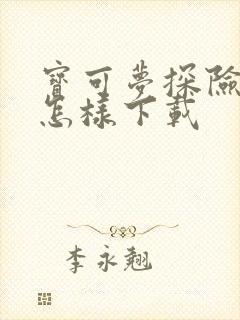 寶可夢探險
怎樣下載
李永翹